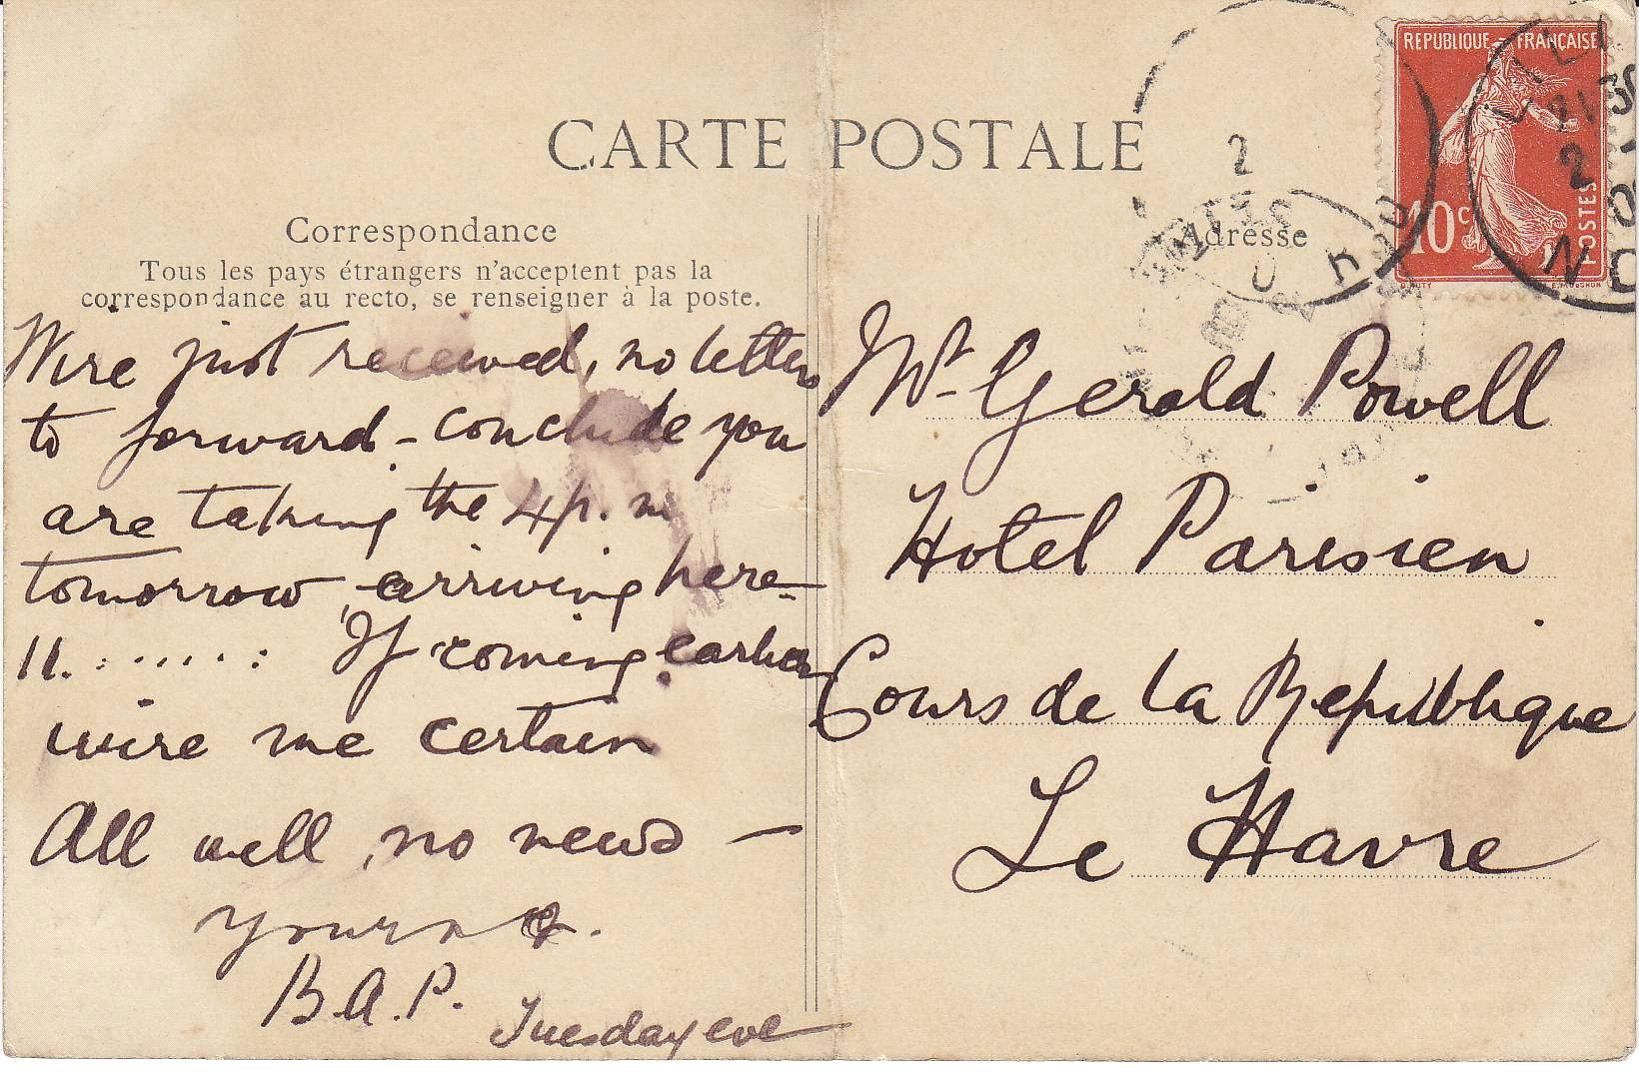 CARTE POSTALE
Correspondance
Tous les pays étrangers n'acceptent pas la
correspondance au recto, se renseigner à la poste.
Wire just received, no letters
to forward - conclude you
are taking the 4 p. m
tomorrow, arriving here
11. : ..... : If coming earlier
wire me certain
All well, no news —
Yours
B.A.P.
Tuesday eve
REPUBLIQUE FRANÇAISE
10c
POSTES
2
Adresse
Mr Gerald Powell
Hotel Parisien
Cours de la Republique
Le Havre